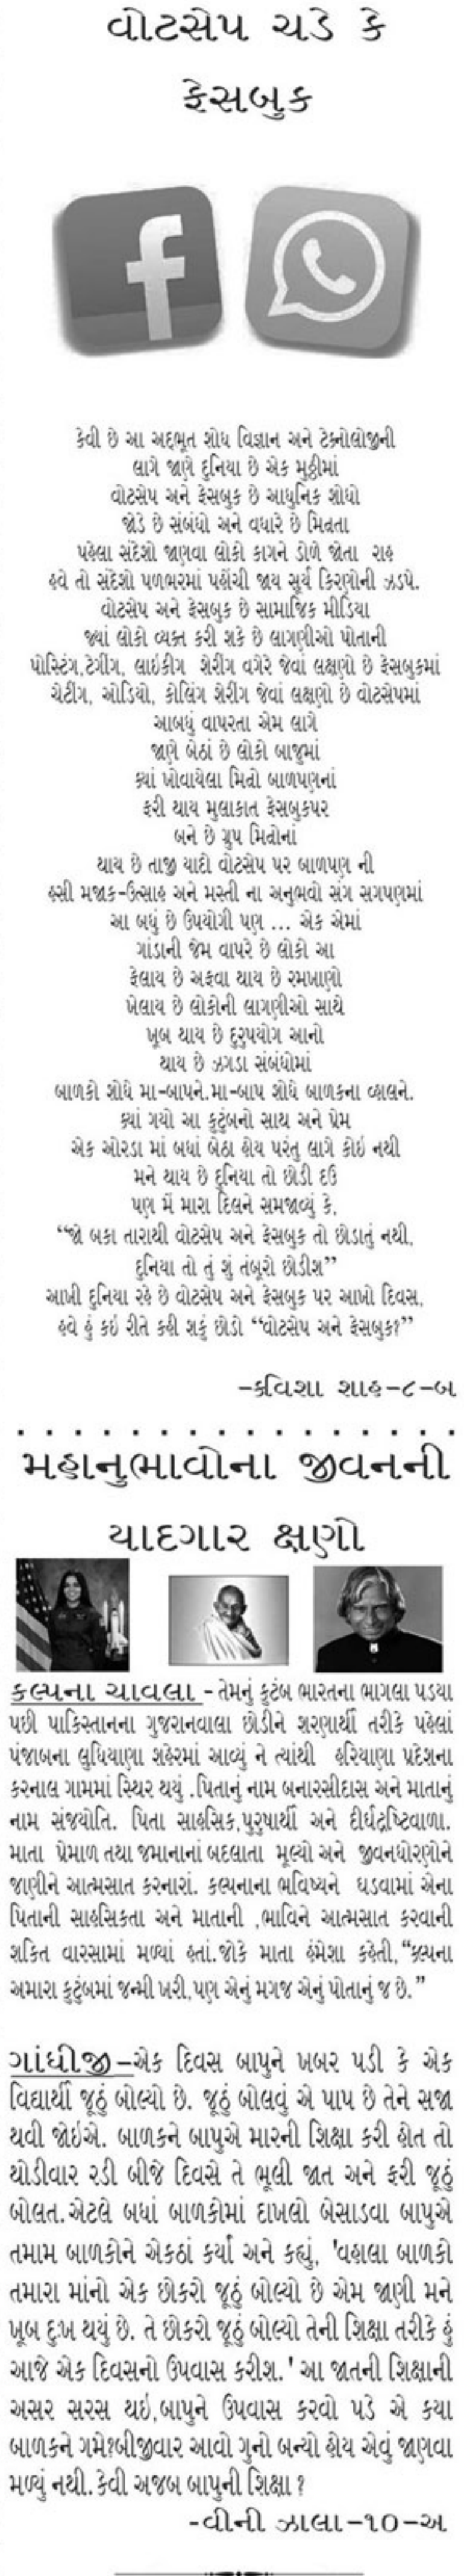 વોટસેપ ચડે કે
ફેસબુક
f
કેવી છે આ અદ્દભૂત શોધ વિજ્ઞાન અને ટેક્નોલોજીની
લાગે જાણે દુનિયા છે એક મુઠ્ઠીમાં
વોટસેપ અને ફેસબુક છે આધુનિક શોધો
જોડે છે સંબંધો અને વધારે છે મિત્રતા
પહેલા સંદેશો જાણવા લોકો કાગને ડોળે જોતા રાહ
હવે તો સંદેશો પળભરમાં પહોંચી જાય સૂર્ય કિરણોની ઝડપે.
વોટસેપ અને ફેસબુક છે સામાજિક મીડિયા
જ્યાં લોકો વ્યક્ત કરી શકે છે લાગણીઓ પોતાની
પોસ્ટિંગ,ટેગીંગ, લાઇકીગ શેરીંગ વગેરે જેવાં લક્ષણો છે ફેસબુકમાં
ચેટીંગ, ઓડિયો, કોલિંગ શેરીંગ જેવાં લક્ષણો છે વોટસેપમાં
આબધું વાપરતા એમ લાગે
જાણે બેઠાં છે લોકો બાજુમાં
ક્યાં ખોવાયેલા મિત્રો બાળપણનાં
ફરી થાય મુલાકાત ફેસબુકપર
બને છે ગ્રુપ મિત્રોનાં
થાય છે તાજી યાદો વોટસેપ પર બાળપણ ની
હસી મજાક-ઉત્સાહ અને મસ્તી ના અનુભવો સંગ સગપણમાં
આ બધું છે ઉપયોગી પણ ... એક એમાં
ગાંડાની જેમ વાપરે છે લોકો આ
ફેલાય છે અફવા થાય છે રમખાણો
ખેલાય છે લોકોની લાગણીઓ સાથે
ખૂબ થાય છે દુરુપયોગ આનો
થાય છે ઝગડા સંબંધોમાં
બાળકો શોધે મા-બાપને.મા-બાપ શોધે બાળકના વ્હાલને.
ક્યાં ગયો આ કુટુંબનો સાથ અને પ્રેમ
એક ઓરડા માં બધાં બેઠા હોય પરંતુ લાગે કોઇ નથી
મને થાય છે દુનિયા તો છોડી દઉ
પણ મેં મારા દિલને સમજાવ્યું કે,
“જો બકા તારાથી વોટસેપ અને ફેસબુક તો છોડાતું નથી,
દુનિયા તો તું શું તંબૂરો છોડીશ”
આખી દુનિયા રહે છે વોટસેપ અને ફેસબુક પર આખો દિવસ,
હવે હું કઇ રીતે કહી શકું છોડો “વોટસેપ અને ફેસબુક?”
-કવિશા શાહ-૮-બ
મહાનુભાવોના જીવનની
યાદગાર ક્ષણો
કલ્પના ચાવલા - તેમનું કુટંબ ભારતના ભાગલા પડયા
પછી પાકિસ્તાનના ગુજરાનવાલા છોડીને શરણાર્થી તરીકે પહેલાં
પંજાબના લુધિયાણા શહેરમાં આવ્યું ને ત્યાંથી હરિયાણા પ્રદેશના
કરનાલ ગામમાં સ્થિર થયું .પિતાનું નામ બનારસીદાસ અને માતાનું
નામ સંજયોતિ. પિતા સાહસિક,પુરુષાર્થી અને દીર્ઘદ્રષ્ટિવાળા.
માતા પ્રેમાળ તથા જમાનાનાં બદલાતા મૂલ્યો અને જીવનધોરણોને
જાણીને આત્મસાત કરનારાં. કલ્પનાના ભવિષ્યને ઘડવામાં એના
પિતાની સાહસિકતા અને માતાની ,ભાવિને આત્મસાત કરવાની
શકિત વારસામાં મળ્યાં હતાં.જોકે માતા હંમેશા કહેતી,“ક્લ્પના
અમારા કુટુંબમાં જન્મી ખરી,પણ એનું મગજ એનું પોતાનું જ છે.”
ગાંધીજી-એક દિવસ બાપુને ખબર પડી કે એક
વિદ્યાર્થી જૂઠું બોલ્યો છે. જૂઠું બોલવું એ પાપ છે તેને સજા
થવી જોઇએ. બાળકને બાપુએ મારની શિક્ષા કરી હોત તો
થોડીવાર રડી બીજે દિવસે તે ભૂલી જાત અને ફરી જૂઠું
બોલત.એટલે બધાં બાળકોમાં દાખલો બેસાડવા બાપુએ
તમામ બાળકોને એકઠાં કર્યાં અને કહ્યું, 'વહાલા બાળકો
તમારા માંનો એક છોકરો જૂઠું બોલ્યો છે એમ જાણી મને
ખૂબ દુઃખ થયું છે. તે છોકરો જૂઠું બોલ્યો તેની શિક્ષા તરીકે હું
આજે એક દિવસનો ઉપવાસ કરીશ.' આ જાતની શિક્ષાની
અસર સરસ થઇ,બાપુને ઉપવાસ કરવો પડે એ કયા
બાળકને ગમે?બીજીવાર આવો ગુનો બન્યો હોય એવું જાણવા
મળ્યું નથી.કેવી અજબ બાપુની શિક્ષા ?
-વીની ઝાલા-૧૦-અ